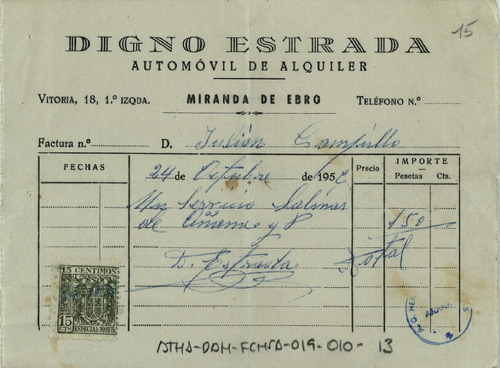 15
DIGNO ESTRADA
AUTOMÓVIL DE ALQUILER
VITORIA, 18, 1.º IZQDA. MIRANDA DE EBRO TELÉFONO N.º
Factura n.º D. Julián Campillo
FECHAS Precio IMPORTE
Pesetas Cts.
24 de Octubre de 195
Un servicio Salinas
de Añana y 150
D. Estrada Total
15 CENTIMOS
15 CTS
ESPECIAL MOVIL
ATHA-DAH-FCHSA-019-010-13